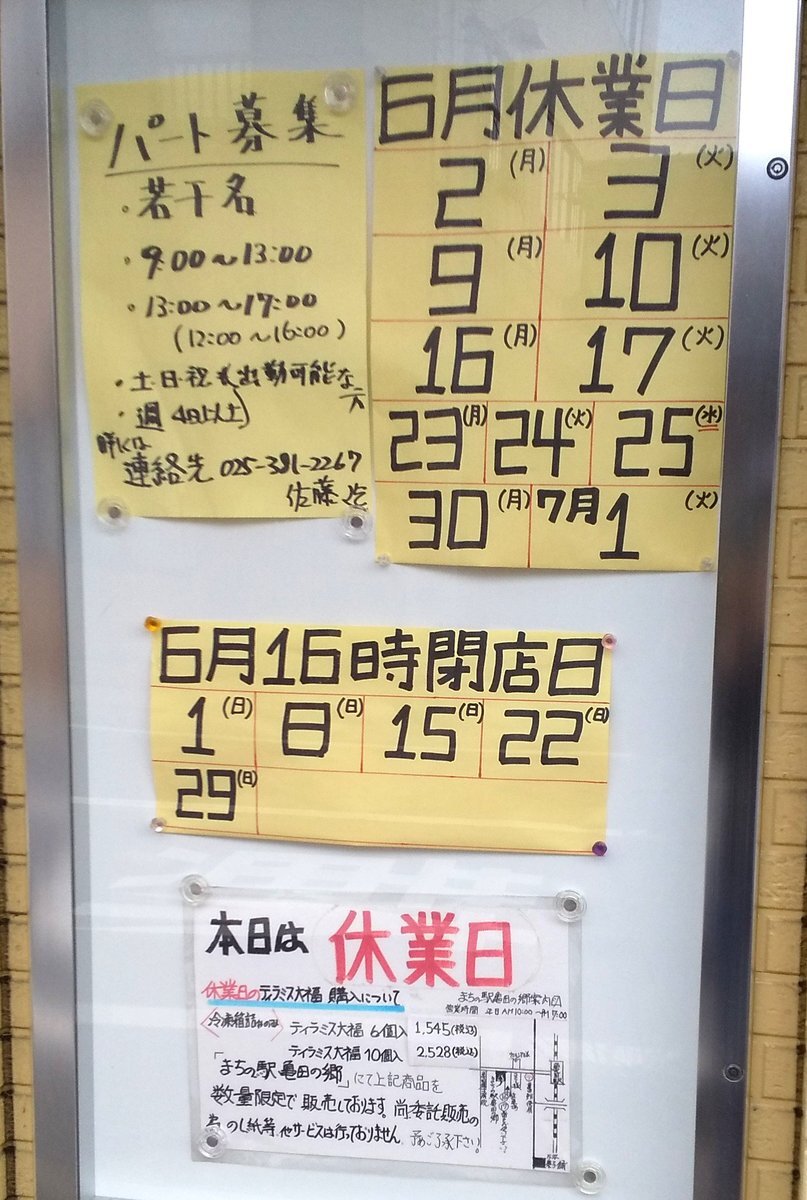 パート募集
・若干名
・9:00～13:00
・13:00～17:00
(12:00～16:00)
・土・日・祝も出勤可能な方
・週4日以上
詳しくは
連絡先 025-381-2267
佐藤迄
6月休業日
2(月) 3(火)
9(月) 10(火)
16(月) 17(火)
23(月) 24(火) 25(水)
30(月) 7月1(火)
6月16時閉店日
1(日) 8(日) 15(日) 22(日)
29(日)
本日は 休業日
休業日のティラミス大福 購入について
冷凍箱詰めのみ
ティラミス大福 6個入 1,545(税込)
ティラミス大福 10個入 2,528(税込)
「まちの駅 亀田の郷」にて上記商品を
数量限定で販売しております。尚、委託販売の
為、のし紙等、他サービスは行っておりません。予めご了承下さい。
まちの駅亀田の郷案内図
営業時間 平日AM10:00～PM17:00